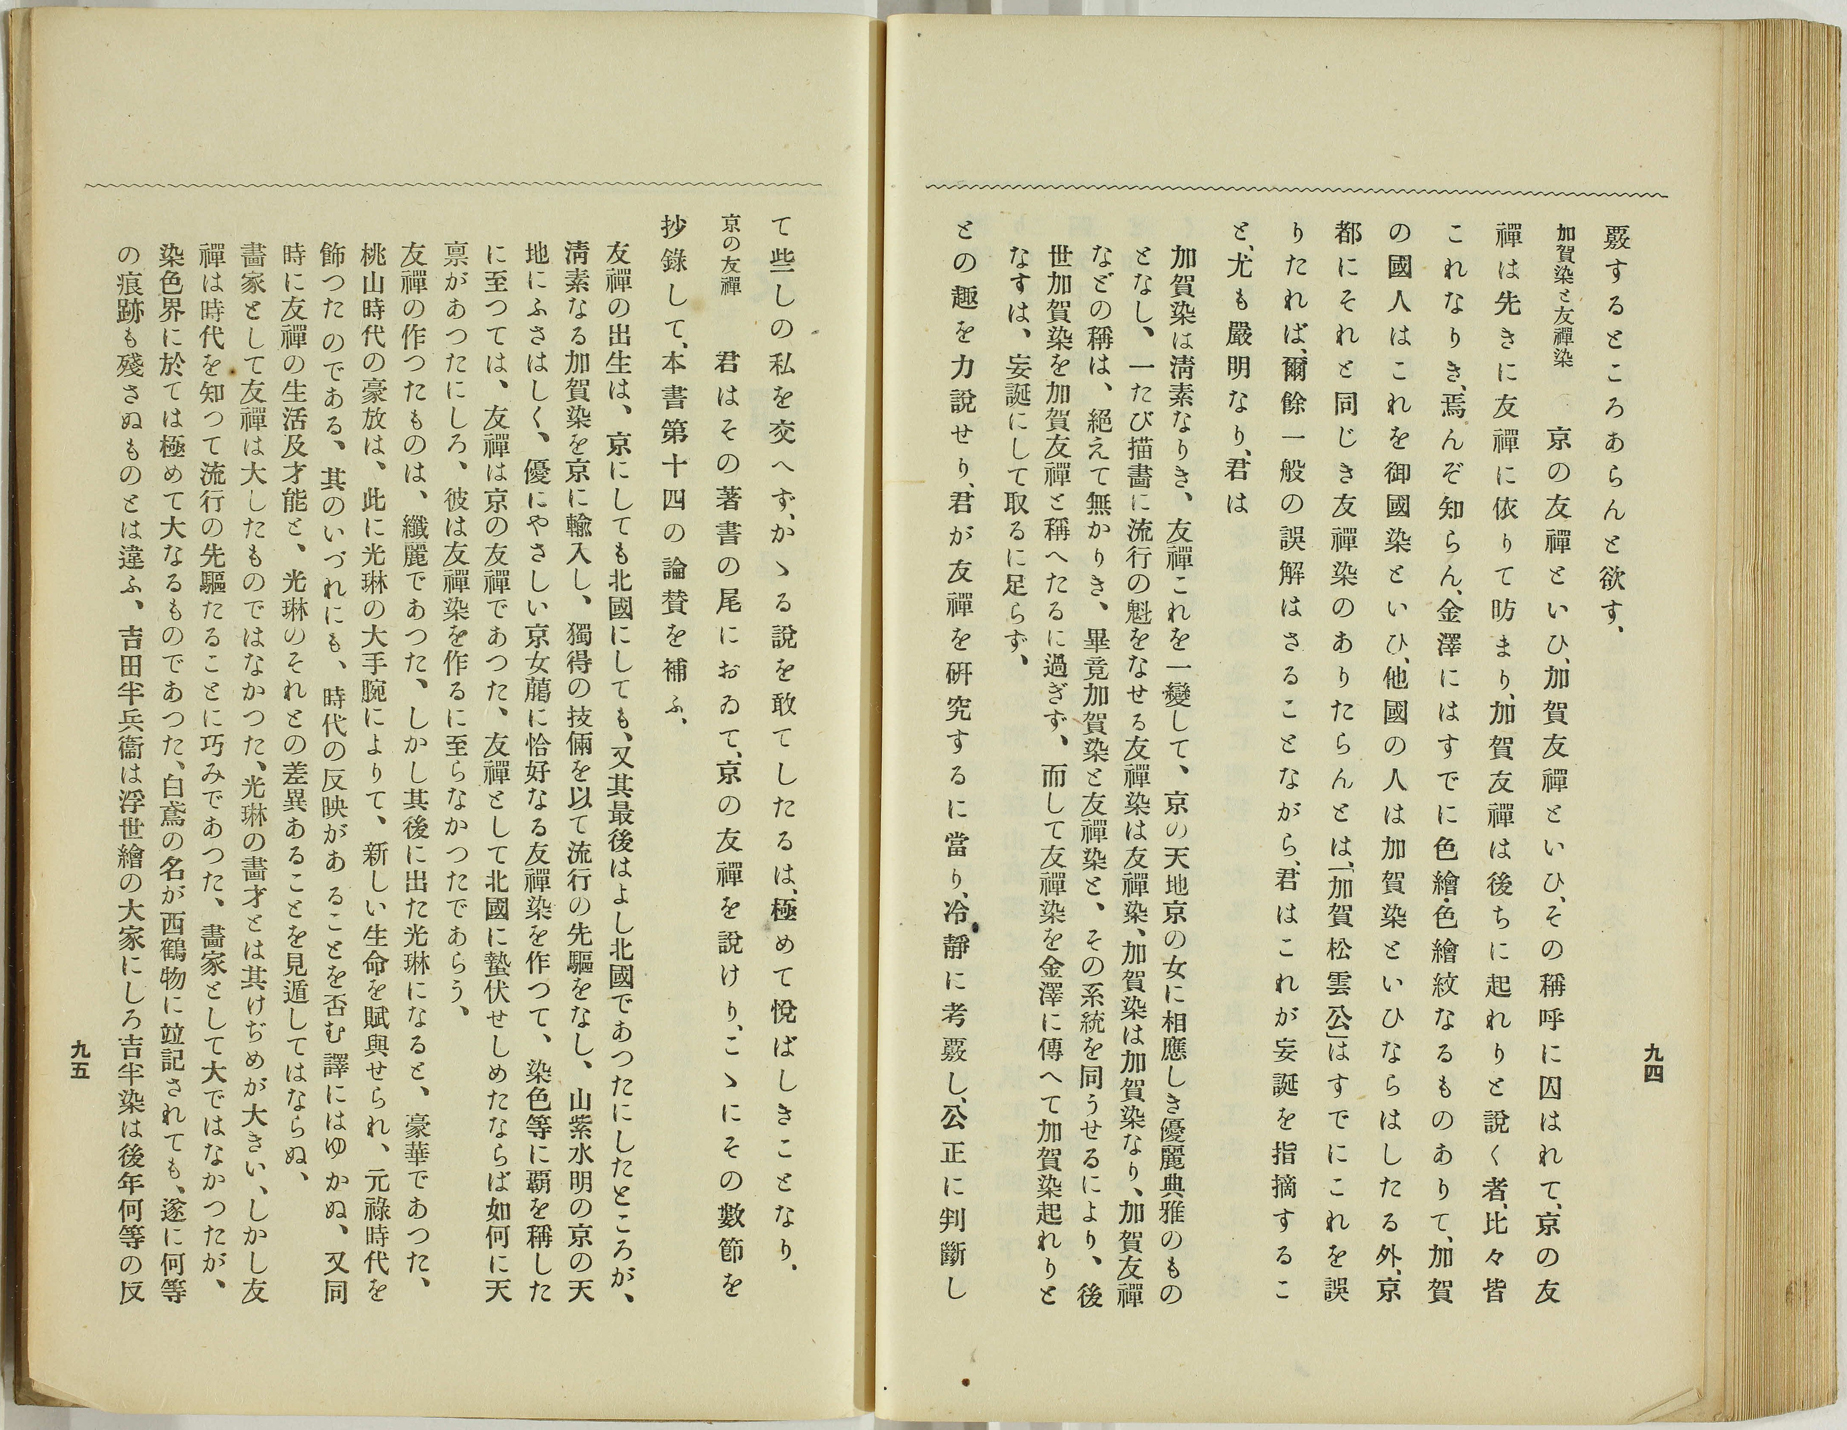 覈するところあらんと欲す、
加賀染と友禪染　京の友禪といひ、加賀友禪といひ、その稱呼に囚はれて、京の友
禪は先きに友禪に依りて昉まり、加賀友禪は後ちに起れりと說く者、比々皆
これなりき、焉んぞ知らん、金澤にはすでに色繪・色繪紋なるものありて、加賀
の國人はこれを御國染といひ、他國の人は加賀染といひならはしたる外、京
都にそれと同じき友禪染のありたらんとは、「加賀松雲公」はすでにこれを誤
りたれば、爾餘一般の誤解はさることながら、君はこれが妄誕を指摘するこ
と、尤も嚴明なり、君は
加賀染は淸素なりき、友禪これを一變して、京の天地京の女に相應しき優麗典雅のもの
となし、一たび描畵に流行の魁をなせる友禪染は友禪染、加賀染は加賀染なり、加賀友禪
などの稱は、絕えて無かりき、畢竟加賀染と友禪染と、その系統を同うせるにより、後
世加賀染を加賀友禪と稱へたるに過ぎず、而して友禪染を金澤に傳へて加賀染起れりと
なすは、妄誕にして取るに足らず、
との趣を力說せり、君が友禪を硏究するに當り、冷靜に考覈し、公正に判斷し
九四
て些しの私を交へず、かゝる說を敢てしたるは、極めて悅ばしきことなり、
京の友禪　君はその著書の尾におゐて、京の友禪を說けり、こゝにその數節を
抄錄して、本書第十四の論賛を補ふ、
友禪の出生は、京にしても北國にしても、又其最後はよし北國であつたにしたところが、
淸素なる加賀染を京に輸入し、獨得の技倆を以て流行の先驅をなし、山紫水明の京の天
地にふさはしく、優にやさしい京女﨟に恰好なる友禪染を作つて、染色等に覇を稱した
に至つては、友禪は京の友禪であつた、友禪として北國に蟄伏せしめたならば如何に天
禀があつたにしろ、彼は友禪染を作るに至らなかつたであらう、
友禪の作つたものは、纖麗であつた、しかし其後に出た光琳になると、豪華であつた、
桃山時代の豪放は、此に光琳の大手腕によりて、新しい生命を賦與せられ、元祿時代を
飾つたのである、其のいづれにも、時代の反映があることを否む譯にはゆかぬ、又同
時に友禪の生活及才能と、光琳のそれとの差異あることを見遁してはならぬ、
畵家として友禪は大したものではなかつた、光琳の畵才とは其けぢめが大きい、しかし友
禪は時代を知つて流行の先驅たることに巧みであつた、畵家として大ではなかつたが、
染色界に於ては極めて大なるものであつた、白鳶の名が西鶴物に竝記されても、遂に何等
の痕跡も殘さぬものとは違ふ、吉田半兵衞は浮世繪の大家にしろ吉半染は後年何等の反
九五